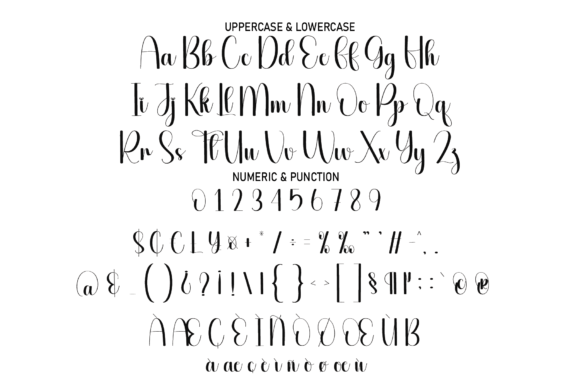 UPPERCASE & LOWERCASE
Aa Bb Cc Dd Ee Ff Gg Hh
Ii Jj Kk Ll Mm Nn Oo Pp Qq
Rr Ss Tt Uu Vv Ww Xx Yy Zz
NUMERIC & PUNCTION
0 1 2 3 4 5 6 7 8 9
$ ₵ C £ ¥ ¤ + * / ÷ = % ‰ " ' # - ^ . ,
@ & _ ( ) ¿ ? ¡ ! \ | { } < > [ ] § ¶ : ; ` © ®
À Æ Ç È Ì Ñ Ò Ø Œ Ù ß
à æ ç è ì ñ ò ø œ ù